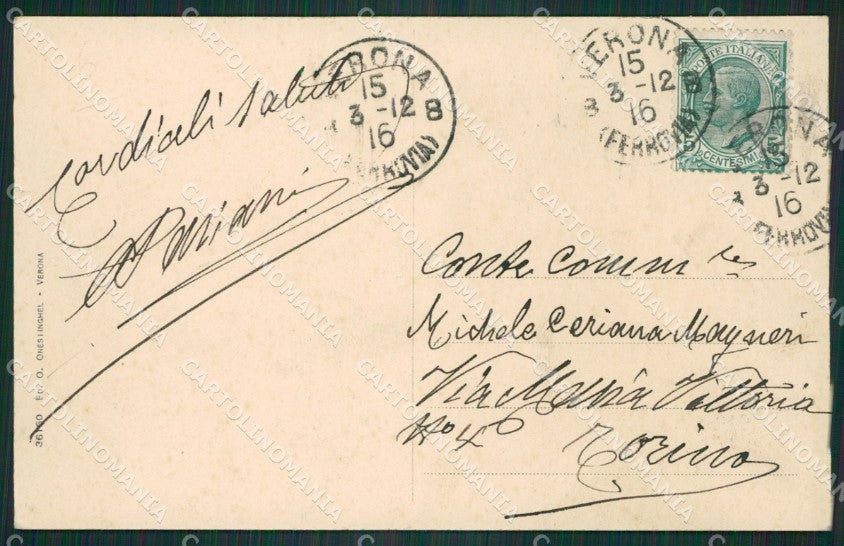 Cordiali saluti
Conte Comm
Michele Ceriana Mayneri
Via Maria Vittoria
No 4
Torino
VERONA
15
3 -12 8
16
(FERROVIA)
VERONA
15
3 -12 8
16
(FERROVIA)
POSTE ITALIANE
5 CENTESIMI
VERONA
15
3 -12
16
(FERROVIA)
ONESTINGHEL • VERONA
CARTOLINOMANIA